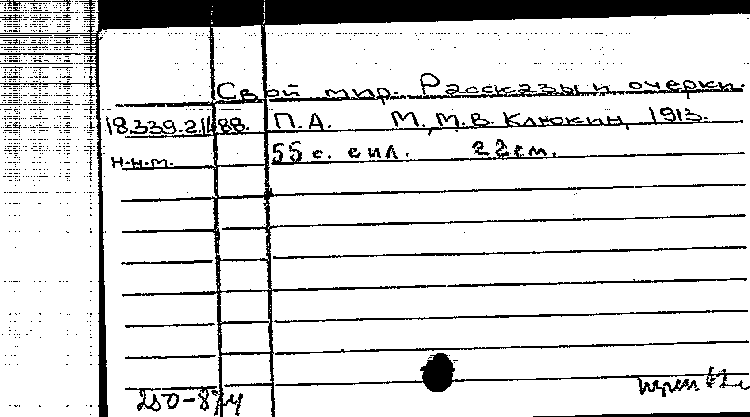 Свой мир. Рассказы и очерки.
18.339.2.1488. П.А. М., М.В. Клюкин, 1913.
н.н.м. 55 с. с ил. 22 см.
250-87у